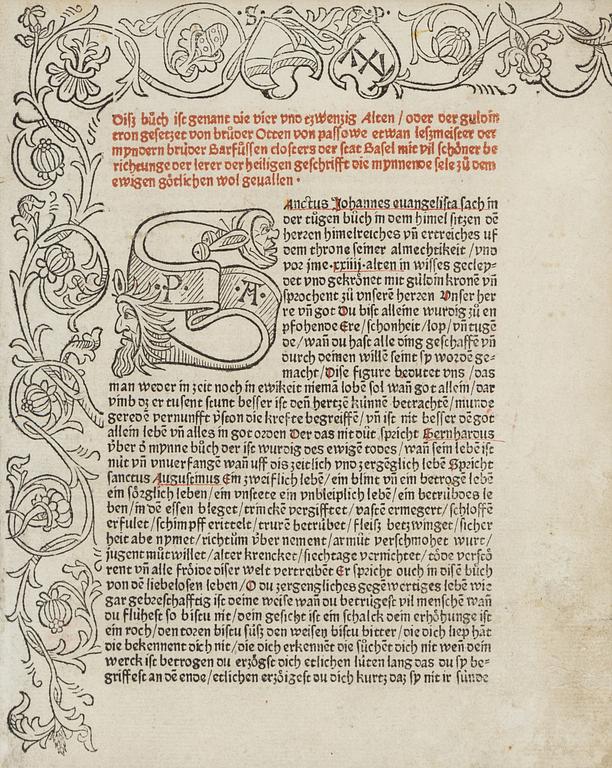 ·S· P·
Disz bůch ist genant die vier vnd tzwenzig Alten / oder der guldin
tron gesetzet von brůder Otten von passowe etwan leszmeister der
myndern brůder Barfůssen closters der stat Basel mit vil schöner be
richtunge der lerer der heiligen geschrifft die mynnende sele zů dem
ewigen götlichen wol geuallen ·
Anctus Johannes euangelista sach in
der tůgen bůch in dem himel sitzen dē
herzen himelreiches vn̄ ertreiches uf
dem throne seiner almechtikeit / vnd
vor jme · xxiiij · alten in wisses gecley-
det vnd gekrönet mit guldin kronē vn̄
sprochent zů vnserē herzen Unser her
re vn̄ got Du bist alleine wurdig zů en
pfohende Ere / schonheit / lop / vn̄ tugē
de / wan̄ du hast alle ding geschaffē vn̄
durch deinen willē seint sy wordē ge-
macht / Dise figure bedutet vns / das
man weder in zeit noch in ewikeit niemā lobē sol wan̄ got allein / dar
vmb dz er tusent stunt besser ist den̄ hertzē kůnnē betrachtē / munde
geredē vernunfft vston die krefte begreiffē / vn̄ ist nit besser dē got
allein lebē vn̄ alles in got orden Der das nit důt spricht Bernhardus
v̊ber ō mynne bůch der ist wurdig des ewigē todes / wan̄ sein lebē ist
nůt vn̄ vnuerfangē wan̄ uff dis zeitlich vnd zergēglich lebē Spricht
sanctus Augustinus Ein zweiflich lebē / ein blint vn̄ ein betrogē lebē
ein sörglich leben / ein vnstete ein vnbleiplich lebē / ein betrůbdes le
ben / in dē essen bleget / trinckē vergifftet / vastē ermegert / schloffē
erfulet / schimpff erittelt / trurē betrůbet / fleisz betzwinget / sicher
heit abe nymet / richtům v̊ber nement / armůt verschmohet wurt /
jugent můtwillet / alter krencket / siechtage vernichtet / tōde verstō
rent vn̄ alle frōide diser welt vertreibēt Er spricht ouch in disē bůch
von dē liebelosen leben / O du zergengliches gegēwertiges lebē wie
gar gebresthafftig ist deine weise wan̄ du betrůgest vil menschē wan̄
du flůhest so bistu nit / dein gesicht ist ein schalck dein erhöhunge ist
ein roch / den toren bistu sůsz den weisen bistu bitter / die dich liep hāt
die bekennent dich nit / die dich erkennēt die sůchēt dich nit wen̄ dein
werck ist betrogen du erzögst dich etlichen lůten lang das du sy be-
griffest an dē ende / etlichen erzōigest du dich kurtz daz sy nit ir sůnde
·P· ·A·